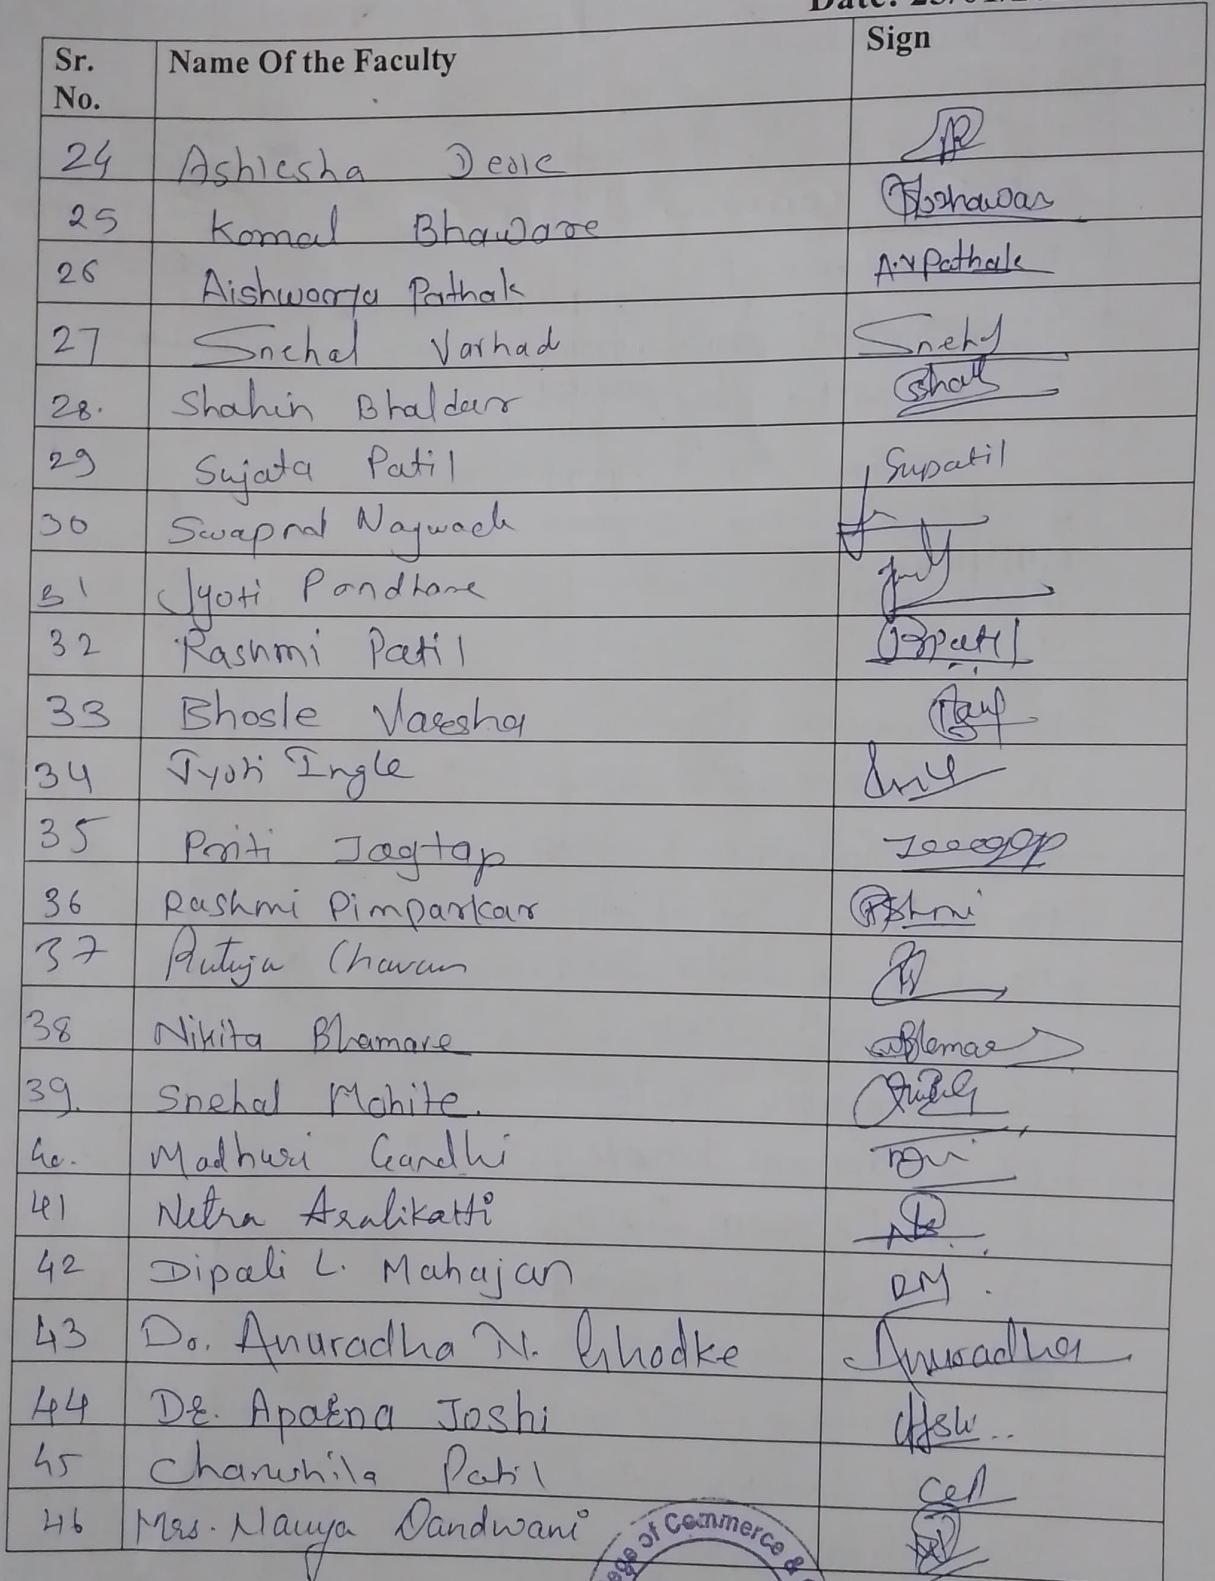 Date: 23/01/
Sr. No. Name Of the Faculty Sign
24 Ashlesha Deole
25 Komal Bhaware
26 Aishwarya Pathak A.V Pathak
27 Snehal Varhad Snehal
28. Shahin Bhaldar
29 Sujata Patil Supatil
30 Swapnal
31 Jyoti Pandhare
32 Rashmi Patil Rpatil
33 Bhosle Varsha
34 Jyoti Ingle
35 Priti Jagtap
36 Rashmi Pimparkar
37 Rutuja Chavan
38 Nikita Bhamare
39. Snehal Mohite.
40. Madhuri Gandhi
41 Netra Aralikatti
42 Dipali L. Mahajan DM.
43 Dr. Anuradha N. Ghodke Anuradha
44 Dr. Aparna Joshi
45 Charushila Patil
46 Mrs. Navya Dandwani
of Commerce &